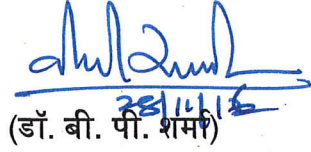 28/11/16
(डॉ. बी. पी. शर्मा)